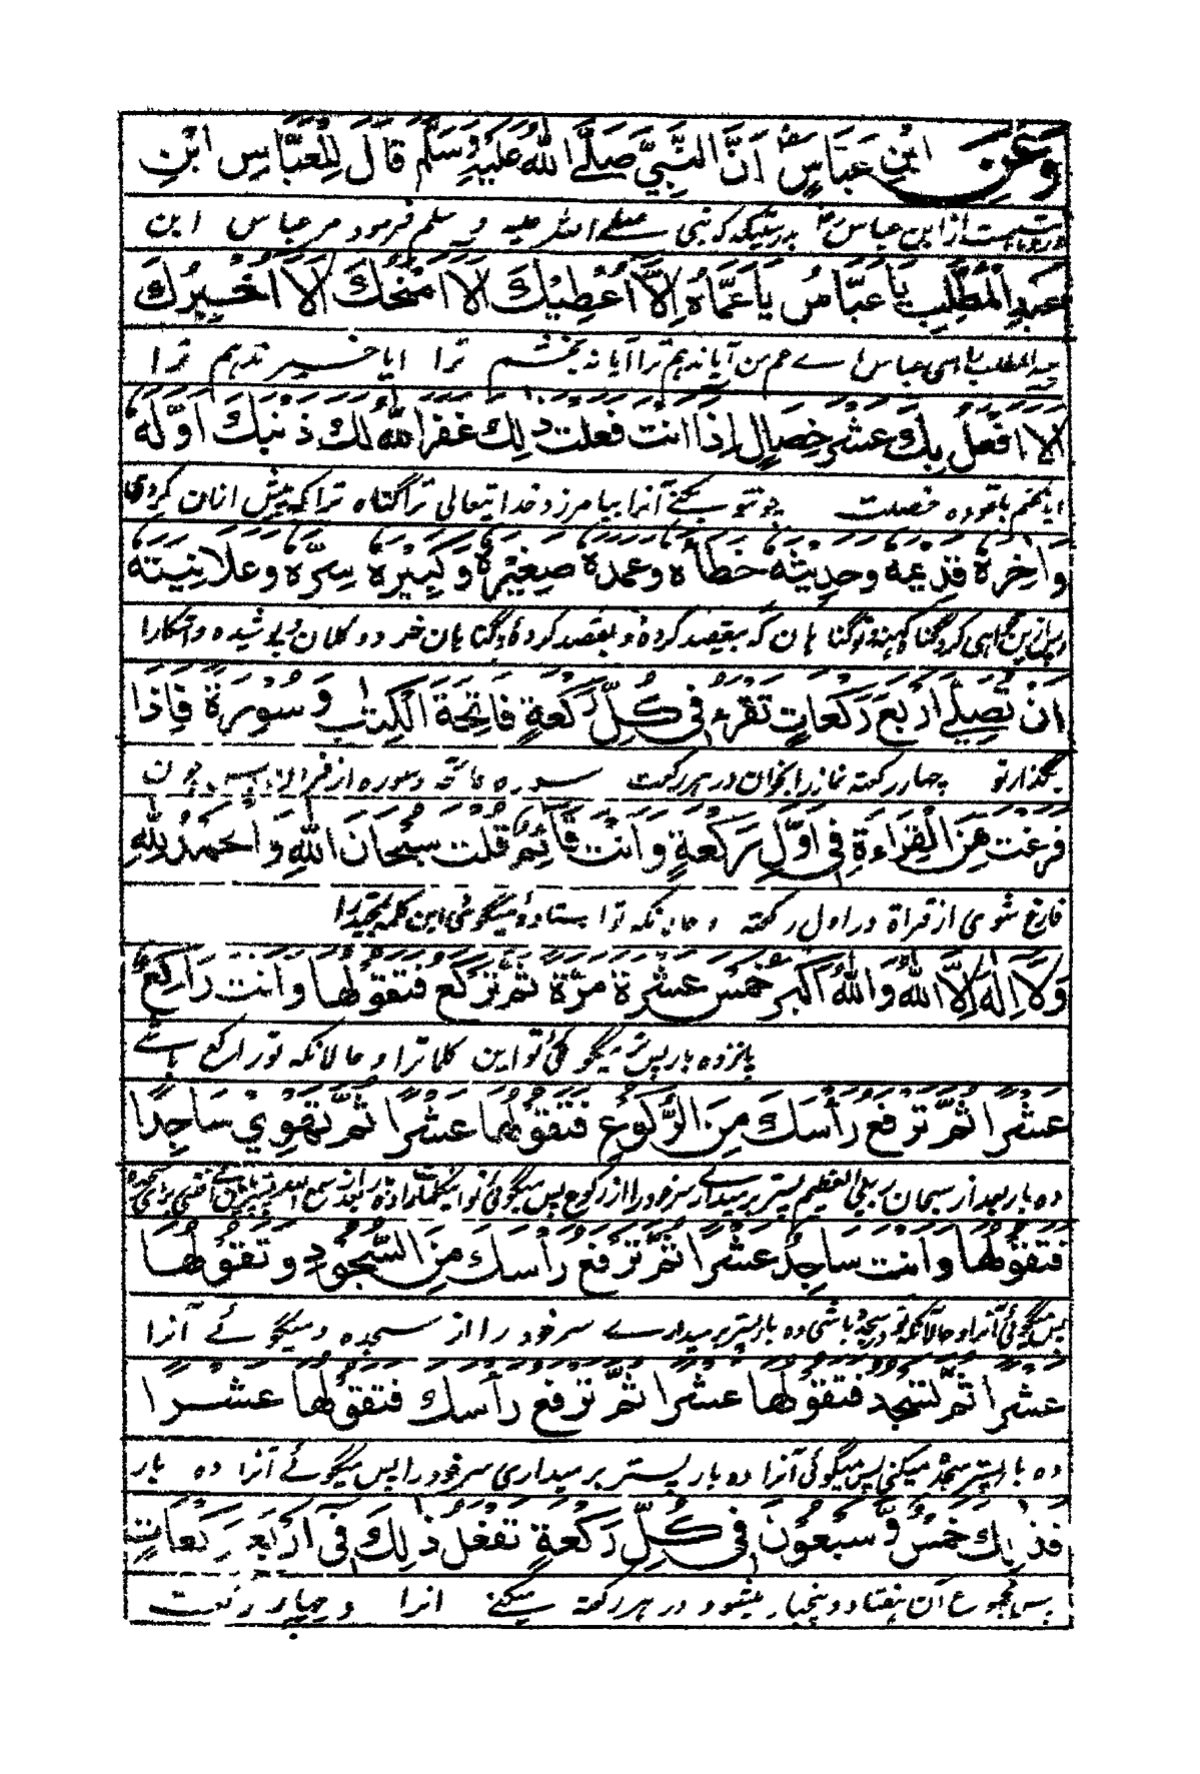 وَعَنْ ابْنِ عَبَّاسٍ رض اَنَّ النَّبِيَّ صَلَّے اللهُ عَلَيْهِ وَسَلَّمَ قَالَ لِلْعَبَّاسِ ابْنِ
از ابن عباس رض بدرستیکه نبی صلے الله علیه و سلم فرمود مر عباس ابن
عَبْدِ الْمُطَّلِبِ يَا عَبَّاسُ يَا عَمَّاهُ اِلَّا اُعْطِيْكَ اَلَا اَمْنَحُكَ اَلَا اُخْبِرُكَ
عبد المطلب را ای عباس اے عم من آیا ندهم ترا آیا نه بخشم ترا ایا خبر ندهم ترا
اَلَا اَفْعَلُ بِكَ عَشْرَ خِصَالٍ اِذَا اَنْتَ فَعَلْتَ ذٰلِكَ غَفَرَ اللهُ لَكَ ذَنْبَكَ اَوَّلَهُ
ایا نکنم باتو ده خصلت چو تو بکنے آنرا بیامرزد خدا یتعالی ترا گناه ترا که پیش ازان کردی
وَاٰخِرَهُ قَدِيْمَهُ وَحَدِيْثَهُ خَطَأَهُ وَعَمْدَهُ صَغِيْرَهُ وَكَبِيْرَهُ سِرَّهُ وَعَلَانِيَتَهُ
گناه کهنه و نو گناهان که بیقصد کرده و بقصد کرده گناهان خرد و کلان پوشیده و آشکارا
اَنْ تُصَلِّے اَرْبَعَ رَكَعَاتٍ تَقْرَءُ فِيْ كُلِّ رَكْعَةٍ فَاتِحَةَ الْكِتٰبِ وَ سُوْرَةً فَاِذَا
بگذار تو چهار رکعته نماز را بخوان در هر رکعت سوره فاتحه و سوره از قرآن پس چون
فَرَغْتَ مِنَ الْقِرَاءَةِ فِي اَوَّلِ رَكْعَةٍ وَ اَنْتَ قَائِمٌ قُلْتَ سُبْحَانَ اللهِ وَ الْحَمْدُ لِلّٰهِ
فارغ شوی از قراة در اول رکعته و حالانکه تو استاده میگوئی این کلمه
وَلَا اِلٰهَ اِلَّا اللهُ وَاللهُ اَكْبَرُ خَمْسَ عَشْرَةَ مَرَّةً ثُمَّ تَرْكَعُ فَتَقُوْلُهَا وَ اَنْتَ رَاكِعٌ
پانزده بار پس میگوئی تو این کلمات را و حالانکه تو راکع باشے
عَشْرًا ثُمَّ تَرْفَعُ رَأْسَكَ مِنَ الرُّكُوْعِ فَتَقُوْلُهَا عَشْرًا ثُمَّ تَهْوِيْ سَاجِدًا
ده بار بعد از سبحان ربی العظیم پستر برمیدارے سر خود را از رکوع پس میگوئی تو
فَتَقُوْلُهَا وَ اَنْتَ سَاجِدٌ عَشْرًا ثُمَّ تَرْفَعُ رَأْسَكَ مِنَ السُّجُوْدِ وَ تَقُوْلُهَا
پس میگوئی آنرا و حالانکه تو در سجده باشی ده بار پستر برمیدارے سر خود را از سجده و میگوئے آنرا
عَشْرًا ثُمَّ تَسْجُدُ فَتَقُوْلُهَا عَشْرًا ثُمَّ تَرْفَعُ رَأْسَكَ فَتَقُوْلُهَا عَشْرًا
ده بار پستر سجده میکنی پس میگوئی آنرا ده بار پستر بر میداری سر خود را پس میگوئے آنرا ده بار
فَذٰلِكَ خَمْسٌ وَّ سَبْعُوْنَ فِيْ كُلِّ رَكْعَةٍ تَفْعَلُ ذٰلِكَ فِيْ اَرْبَعِ رَكَعَاتٍ
پس مجموع آن هفتاد و پنجبار میشود در هر رکعته میکنے انرا در چهار رکعت